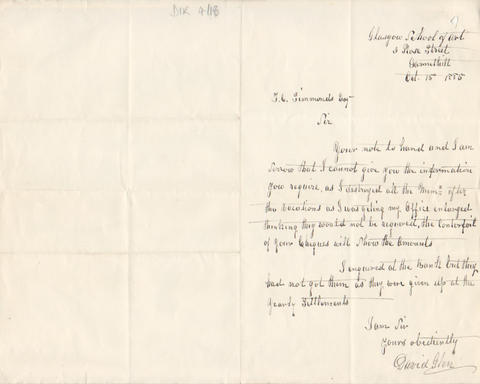 DIR 4/18
Glasgow School of Art
3 Rose Street
Garnethill
Oct. 15 1885
T. C. Simmonds Esqr
Sir
Your note to hand and I am
Sorrow that I cannot give you the information
you require, as I destroyed all the after
the vacations as I was getting my Office enlarged
thinking they would not be required, the Conterfoit
of your Cheques will Show the Amounts
I enquired at the Bank but they
had not got them as they were given up at the
yearly Settlements
I am Sir
Yours obediently
David Glen